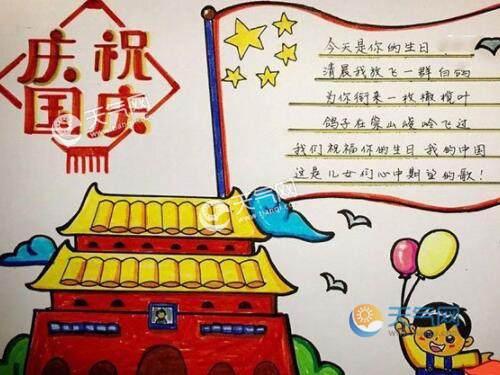 庆祝
国庆
今天是你的生日
清晨我放飞一群白鸽
为你衔来一枚橄榄叶
鸽子在崇山峻岭飞过
我们祝福你的生日 我的中国
这是儿女们心中期望的歌!
天气网
天气网
天气网